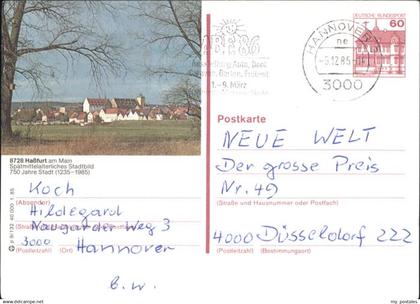 DEUTSCHE BUNDESPOST
60
HANNOVER
-5.12.85
3000
ABF 86
Ausstellung Auto, Boot
Garten, Freizeit
1.-9. März
8728 Haßfurt am Main
Spätmittelalterliches Stadtbild
750 Jahre Stadt (1235-1985)
Koch
(Absender)
Hildegard
Naugarder Weg 3
3000 Hannover
(Postleitzahl) (Ort)
b.w.
Postkarte
NEUE WELT
Der grosse Preis
Nr. 49
(Straße und Hausnummer oder Postfach)
4000 Düsseldorf 222
(Postleitzahl) (Bestimmungsort)